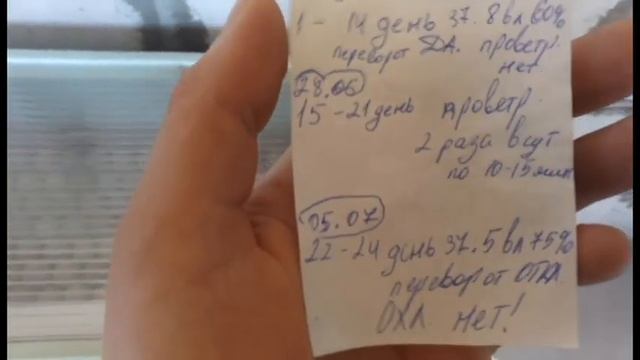 1 - 14 день 37.8 вл 60%
переворот ДА. проветр.
нет
28.06
15 - 21 день проветр.
2 раза в сут
по 10-15 мин
05.07
22 - 24 день 37.5 вл 75%
переворот ОТКЛ
ОХЛ нет!